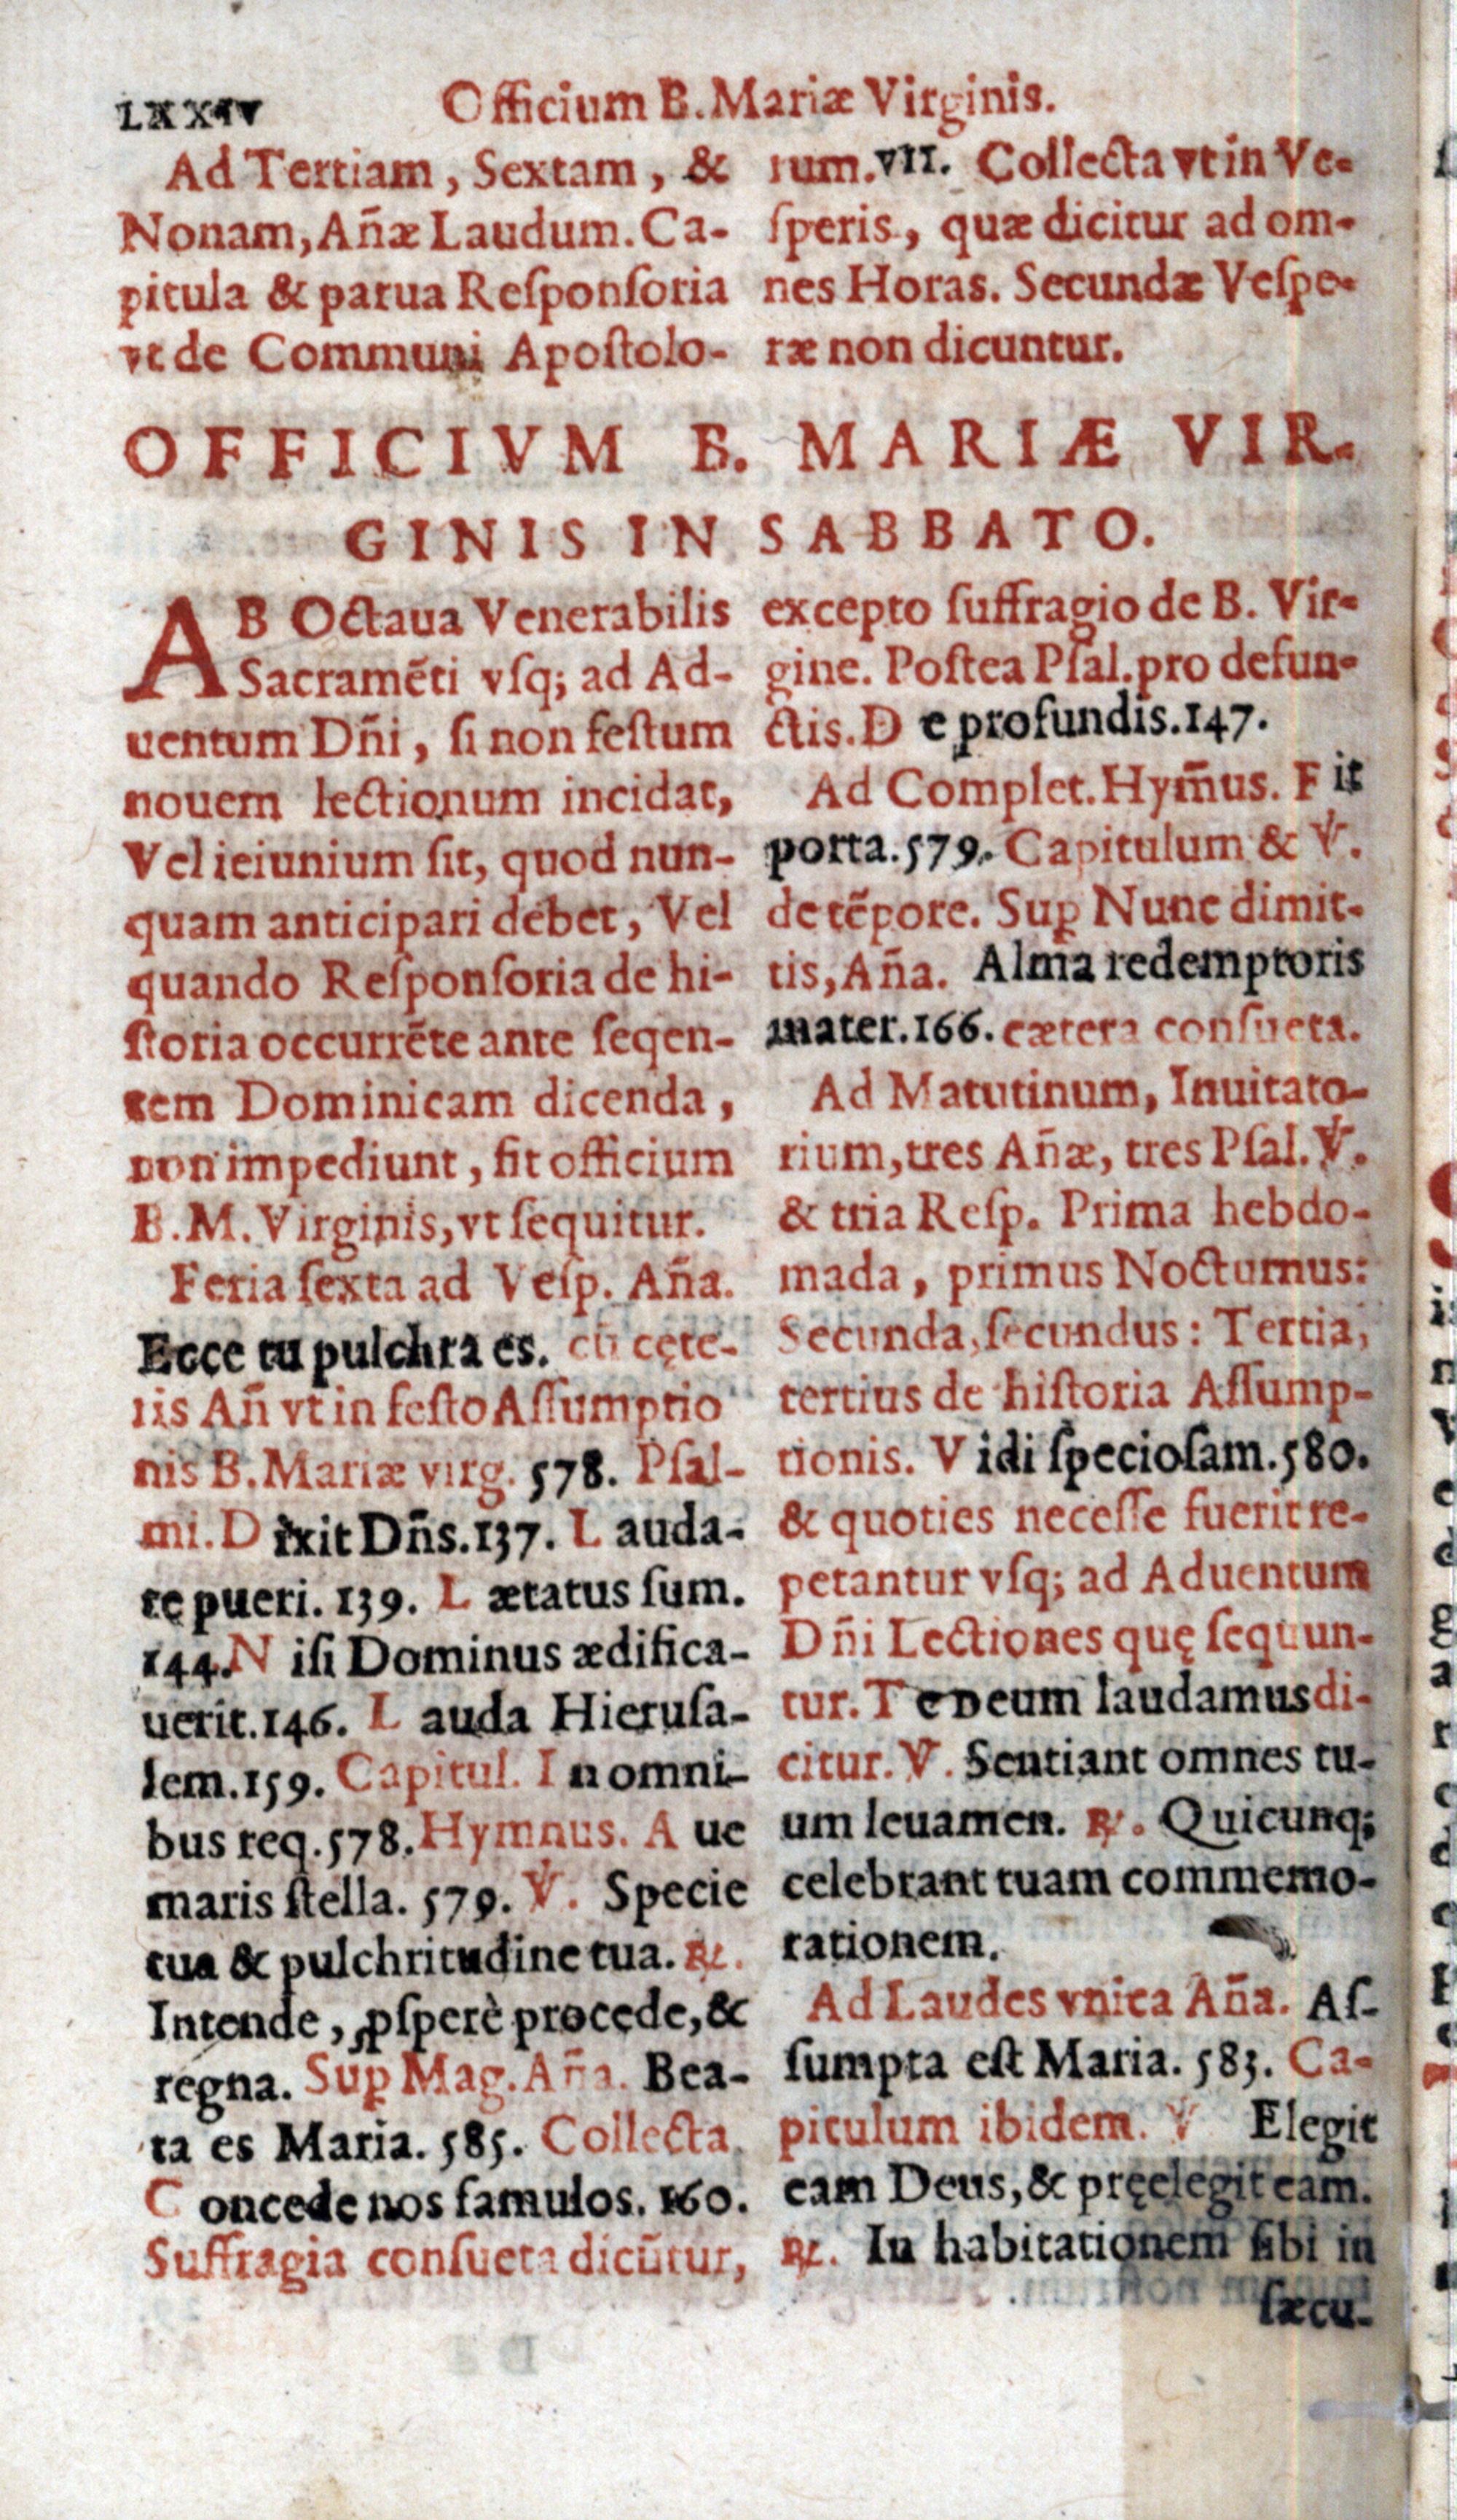 LXXIV Officium B. Mariæ Virginis.
Ad Tertiam, Sextam, &
Nonam, Añæ Laudum. Ca-
pitula & parua Reſponſoria
vt de Communi Apoſtolo-
rum. VII. Collecta vt in Ve-
ſperis, quæ dicitur ad om-
nes Horas. Secundæ Veſpe-
ræ non dicuntur.
OFFICIVM B. MARIÆ VIR-
GINIS IN SABBATO.
AB Octaua Venerabilis
Sacramẽti vſq; ad Ad-
uentum Dñi, ſi non feſtum
nouem lectionum incidat,
Vel ieiunium ſit, quod nun-
quam anticipari debet, Vel
quando Reſponſoria de hi-
ſtoria occurrẽte ante ſeqen-
tem Dominicam dicenda,
non impediunt, fit officium
B. M. Virginis, vt ſequitur.
Feria ſexta ad Veſp. Aña.
Ecce tu pulchra es. cũ cęte-
ris Añ vt in feſto Aſſumptio
nis B. Mariæ virg. 578. Pſal-
mi. D ixit Dñs. 137. L auda-
te pueri. 139. L ætatus ſum.
144. N iſi Dominus ædifica-
uerit. 146. L auda Hieruſa-
lem. 159. Capitul. I n omni-
bus req. 578. Hymnus. A ue
maris ſtella. 579. ℣. Specie
tua & pulchritudine tua. ℟.
Intende, ꝓſperè procede, &
regna. Suꝑ Mag. Aña. Bea-
ta es Maria. 585. Collecta
C oncede nos famulos. 160.
Suffragia conſueta dicũtur,
excepto ſuffragio de B. Vir-
gine. Poſtea Pſal. pro defun-
ctis. D e profundis. 147.
Ad Complet. Hym̃us. F it
porta. 579. Capitulum & ℣.
de tẽpore. Suꝑ Nunc dimit-
tis, Aña. Alma redemptoris
mater. 166. cætera conſueta.
Ad Matutinum, Inuitato-
rium, tres Añæ, tres Pſal. ℣.
& tria Reſp. Prima hebdo-
mada, primus Nocturnus:
Secunda, ſecundus: Tertia,
tertius de hiſtoria Aſſump-
tionis. V idi ſpecioſam. 580.
& quoties neceſſe fuerit re-
petantur vſq; ad Aduentum
Dñi Lectiones quę ſequun-
tur. T e Deum laudamus di-
citur. ℣. Sentiant omnes tu-
um leuamen. ℟. Quicunq;
celebrant tuam commemo-
rationem.
Ad Laudes vnica Aña. Aſ-
ſumpta eſt Maria. 583. Ca-
pitulum ibidem. ℣ Elegit
eam Deus, & pręelegit eam.
℟. In habitationem ſibi in
ſæcu-